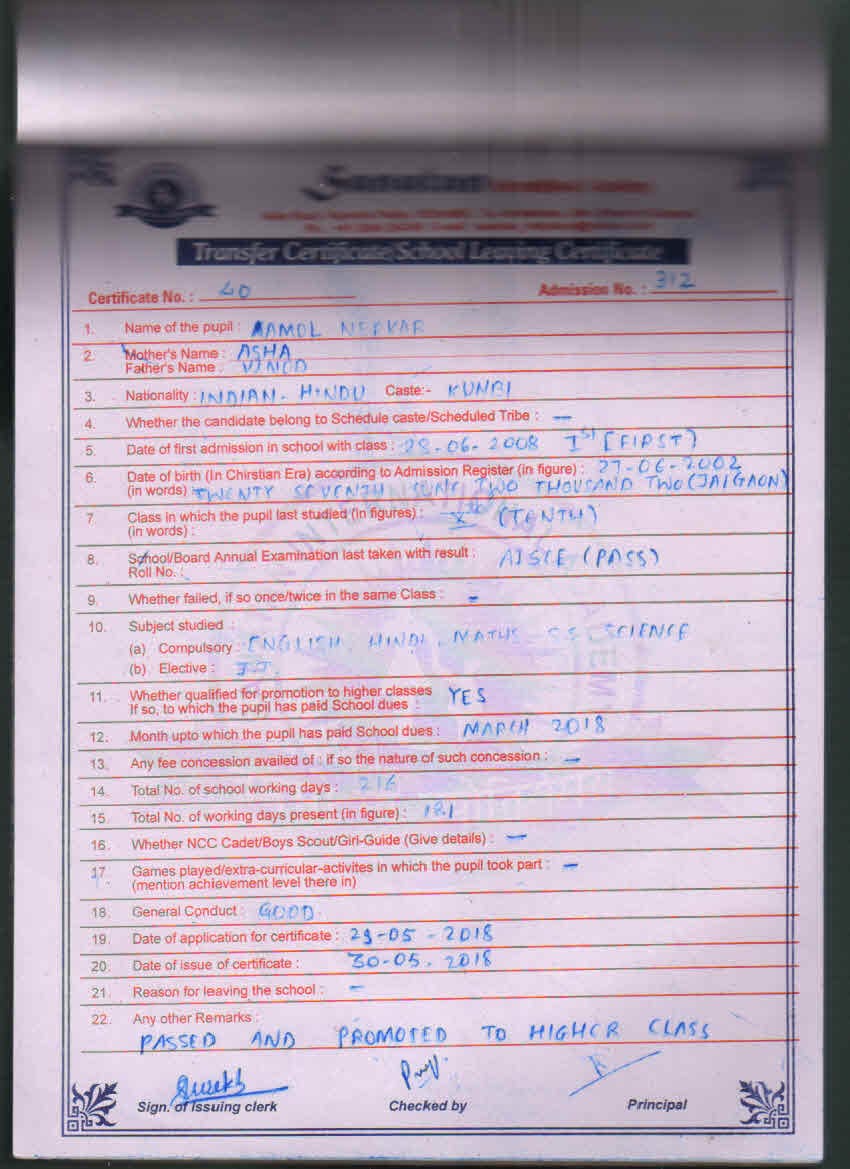 Transfer Certificate/School Leaving Certificate
Certificate No. : 40 Admission No. : 312
1. Name of the pupil : AAMOL NERKAR
2. Mother's Name : ASHA
Father's Name : VINOD
3. Nationality : INDIAN - HINDU Caste:- KUNBI
4. Whether the candidate belong to Schedule caste/Scheduled Tribe : —
5. Date of first admission in school with class : 28-06-2008 Ist (FIRST)
6. Date of birth (In Chirstian Era) according to Admission Register (in figure) : 27-06-2002
(in words) TWENTY SEVENTH JUNE TWO THOUSAND TWO (JALGAON)
7. Class in which the pupil last studied (in figures) : Xth (TENTH)
(in words) :
8. School/Board Annual Examination last taken with result : AISCE (PASS)
Roll No. :
9. Whether failed, if so once/twice in the same Class : -
10. Subject studied :
(a) Compulsory : ENGLISH, HINDI, MATHS S.S. SCIENCE
(b) Elective : I.T.
11. Whether qualified for promotion to higher classes YES
If so, to which the pupil has paid School dues :
12. Month upto which the pupil has paid School dues : MARCH 2018
13. Any fee concession availed of : if so the nature of such concession : —
14. Total No. of school working days : 216
15. Total No. of working days present (in figure) : 181
16. Whether NCC Cadet/Boys Scout/Girl-Guide (Give details) : —
17. Games played/extra-curricular-activites in which the pupil took part : —
(mention achievement level there in)
18. General Conduct : GOOD.
19. Date of application for certificate : 29-05-2018
20. Date of issue of certificate : 30-05-2018
21. Reason for leaving the school : -
22. Any other Remarks :
PASSED AND PROMOTED TO HIGHER CLASS
Sign. of Issuing clerk Checked by Principal